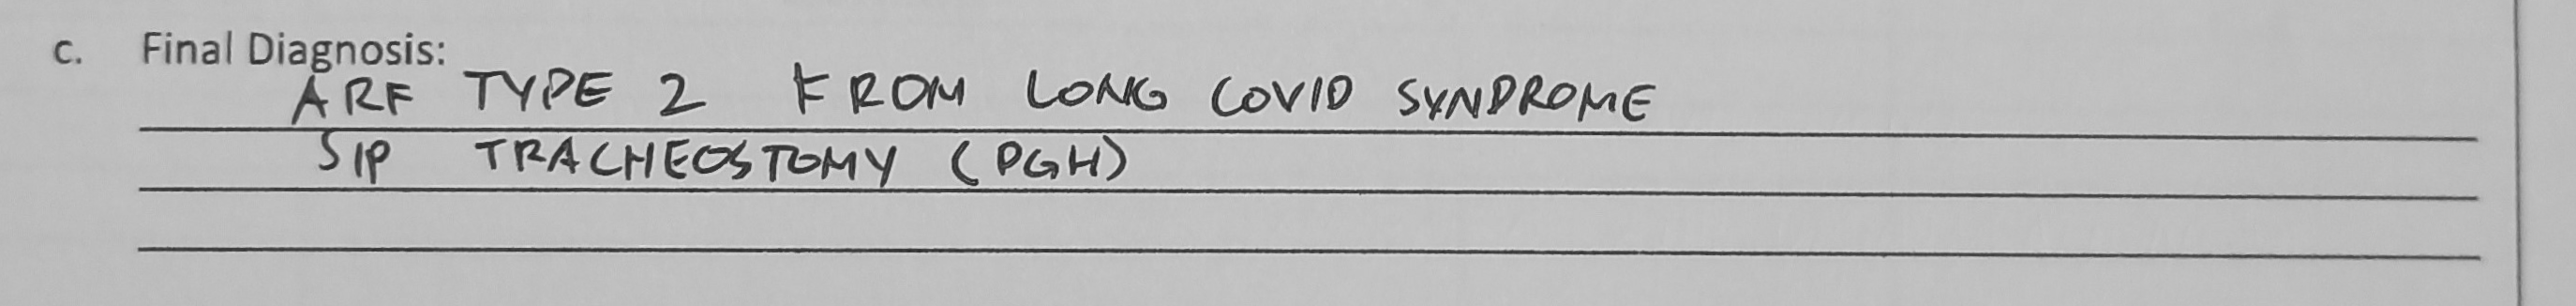 c. Final Diagnosis:
ARF TYPE 2 FROM LONG COVID SYNDROME
S/P TRACHEOSTOMY (PGH)